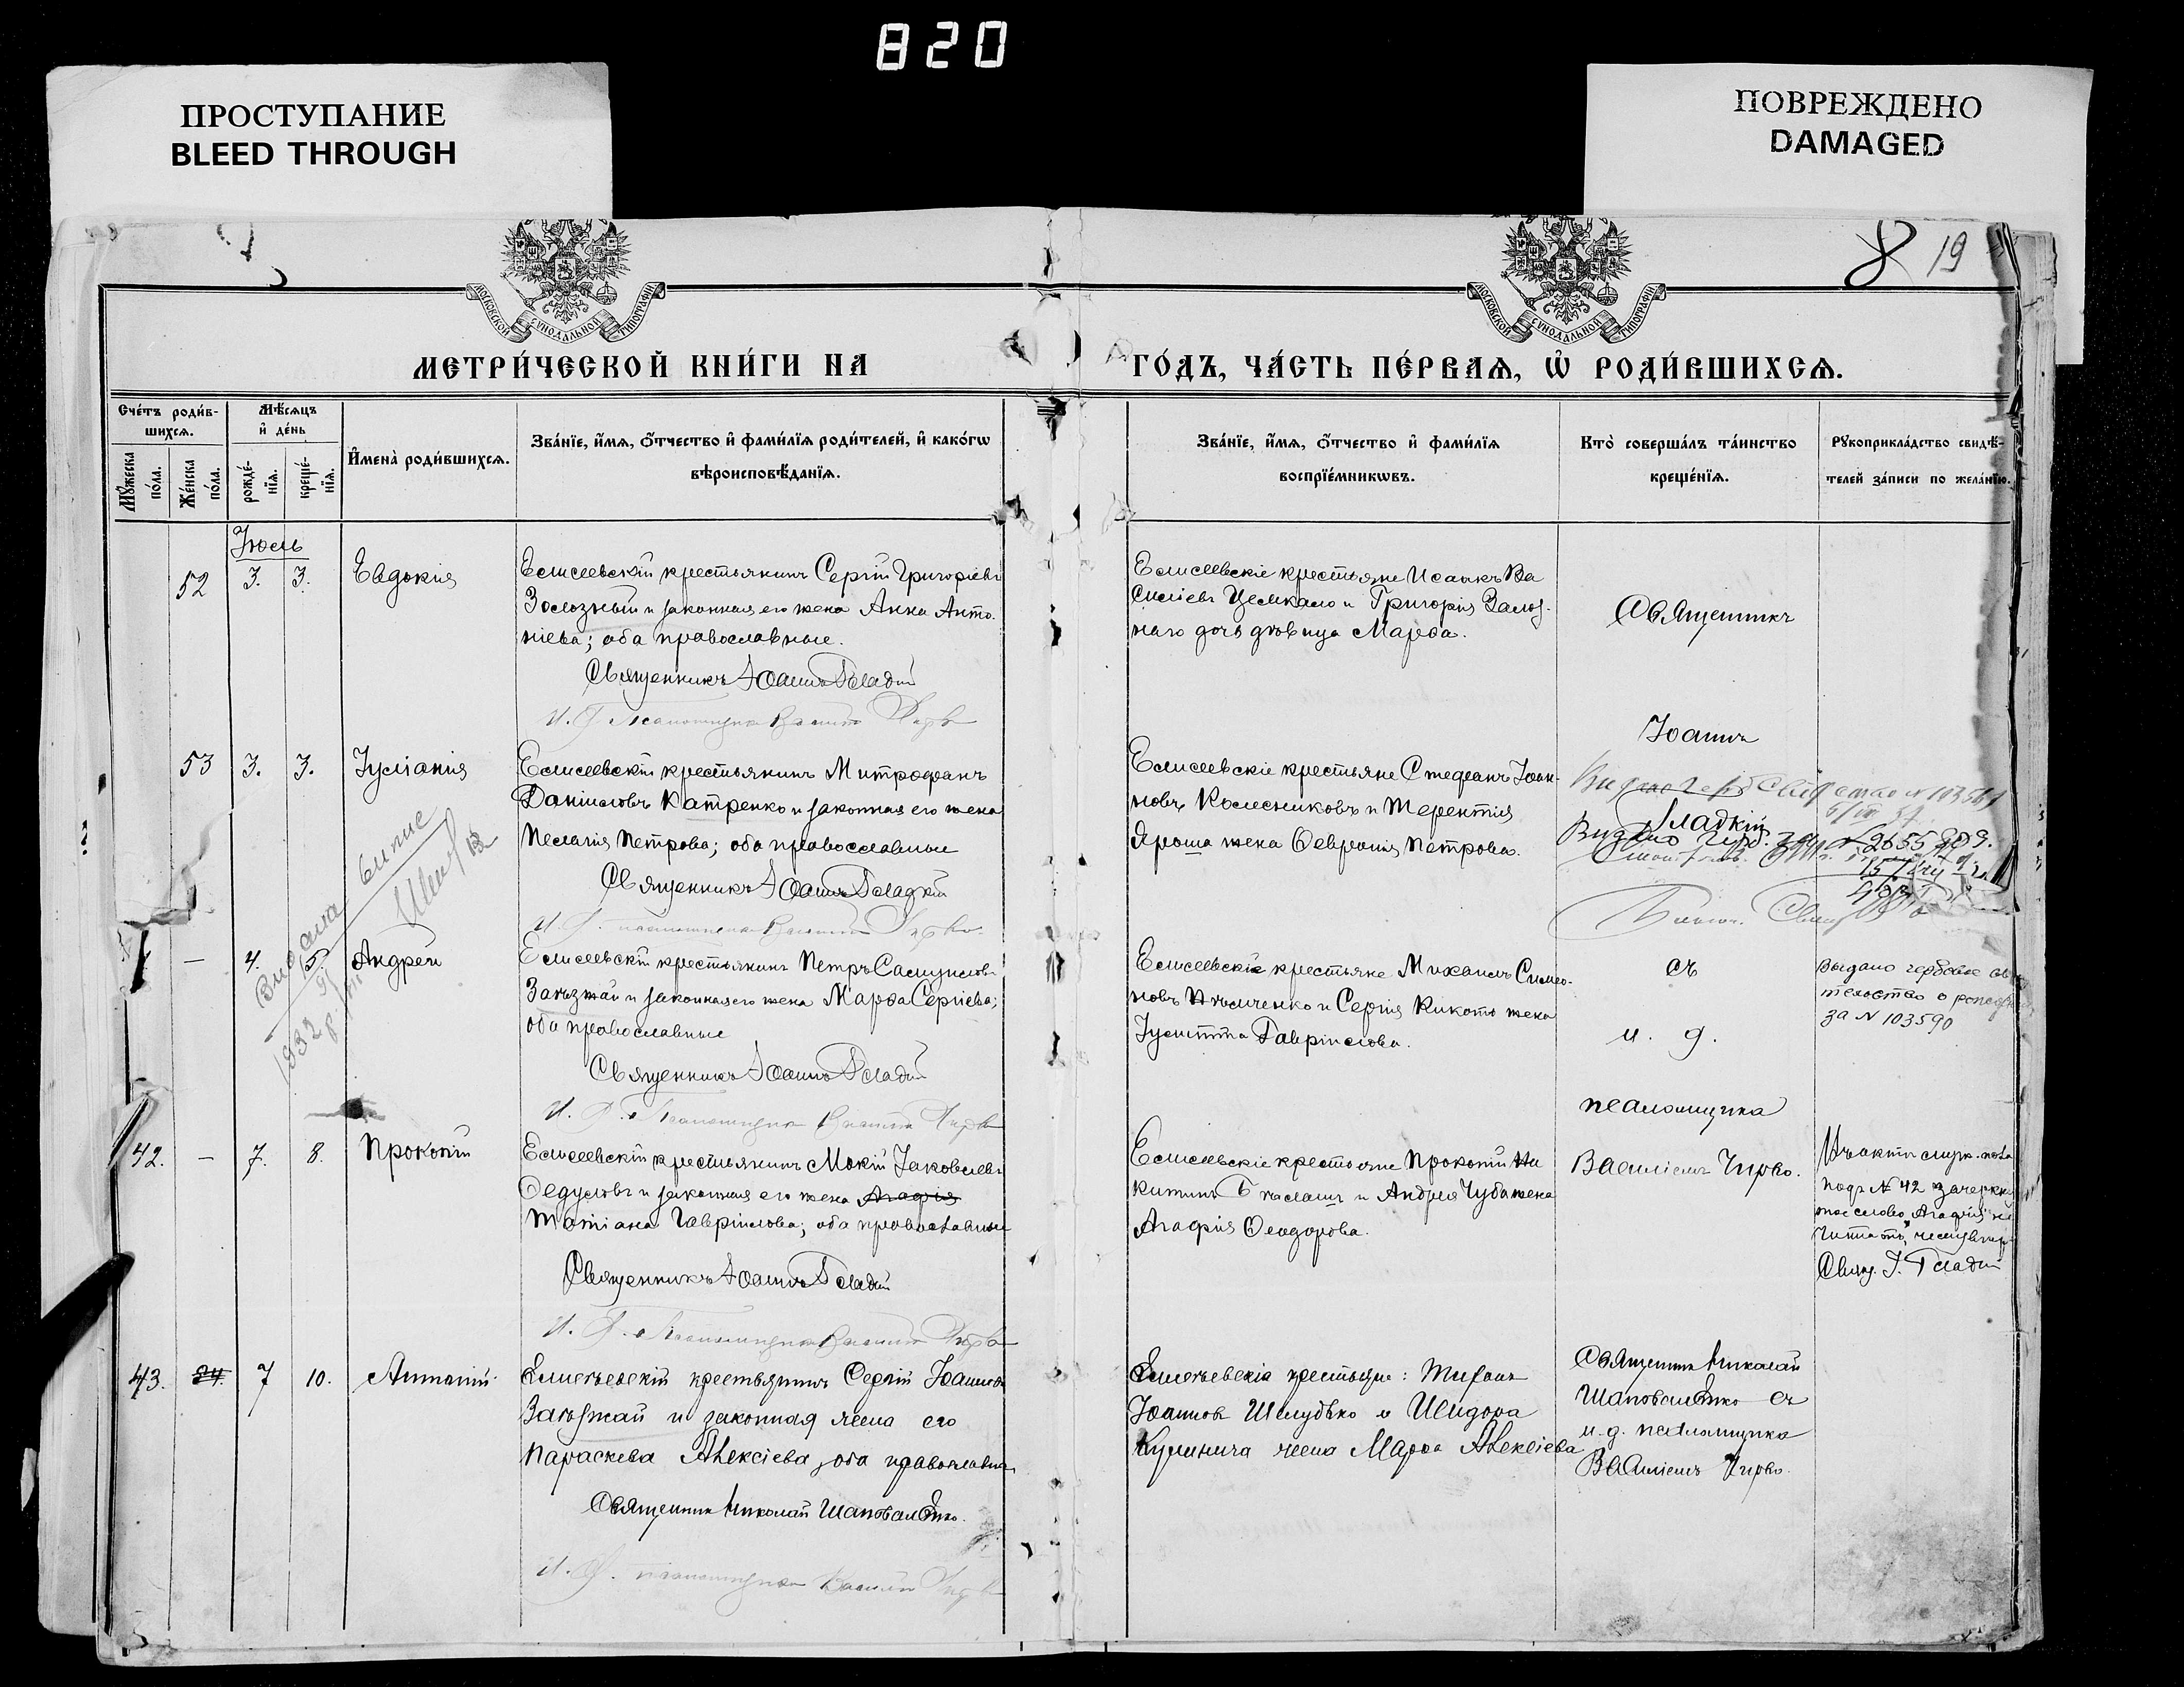 820
ПРОСТУПАНИЕ
BLEED THROUGH
ПОВРЕЖДЕНО
DAMAGED
8 19
МОСКОВСКОЙ СѴНОДАЛЬНОЙ ТИПОГРАФІИ
МОСКОВСКОЙ СѴНОДАЛЬНОЙ ТИПОГРАФІИ
МЕТРИ́ЧЕСКОЙ КНИ́ГИ НА
ГО́ДЪ, ЧА́СТЬ ПЕ́РВАѦ, Ѽ РОДИ́ВШИХСѦ.
Сче́тъ роди́в-
шихсѧ.
Мѣ́сѧцъ
и҆ де́нь
Мꙋ́жеска по́ла.
Же́нска по́ла.
рожде́-нїѧ.
креще́-нїѧ.
И҆мена̀ роди́вшихсѧ.
Зва́нїе, и҆́мѧ, ѻ҆́тчество и҆ фами́лїѧ роди́телей, и҆ како́гѡ
вѣроисповѣ́данїѧ.
Зва́нїе, и҆́мѧ, ѻ҆́тчество и҆ фами́лїѧ
воспрїе́мникѡвъ.
Кто̀ соверша́лъ та́инство
креще́нїѧ.
Рꙋкоприкла́дство свидѣ́-
телей за́писи по жела́нїю.
Іюль
52 3. 3. Евдокія
Елисеевскій крестьянинъ Сергій Григоріевъ
Залозный и законная его жена Анна Анто-
ніева; оба православные.
Священникъ Іоаннъ Гладкій
И. д. псаломщика Василій Чирво
Елисеевскіе крестьяне Исаакъ Ва
силіевъ Цемкало и Григорія Залоз-
наго дочь дѣвица Марфа.
Священникъ
Іоаннъ
53 3. 3. Іуліанія
Елисеевскій крестьянинъ Митрофанъ
Даніиловъ Катренко и законная его жена
Пелагія Петрова; оба православные
Священникъ Іоаннъ Гладкій
И. д. псаломщика Василій Чирво.
Елисеевскіе крестьяне Стефанъ Іоан-
новъ Колесниковъ и Терентія
Яроша жена Февронія Петрова.
Гладкій
— 4. 5 Андрей
Елисеевскій крестьянинъ Петръ Самуиловъ
Загъзжай и законная его жена Марфа Сергіева;
оба православные
Священникъ Іоаннъ Гладкій
И. д. псаломщика Василій Чирво
Елисеевскіе крестьяне Михаилъ Симео-
новъ и Сергія Кикотъ жена
Іулитта Гавріилова.
съ
и. д.
псаломщика
Выдано гербовое
за № 103590
42. — 7. 8. Прокопій
Елисеевскій крестьянинъ Мокій Іаковлевъ
Федуловъ и законная его жена Агафія
Татіана Гавріилова; оба православные
Священникъ Іоаннъ Гладкій
И. д. псаломщика Василій Чирво
Елисеевскіе крестьяне Прокопій Ни
китинъ и Андрея Чуба жена
Агафія Феодорова.
Василіемъ Чирво.
подъ № 42 зачеркну
тое слово „Агафія" не
Свящ. І. Гладкій
43. 24. 7 10. Антоній
Елисѣевскій крестьянинъ Сергій Іоанновъ
Загъзжай и законная жена его
Параскева Алексіева, оба православн.
Священникъ Николай Шаповаленко.
И. д. псаломщика Василій Чирво
Елисѣевскіе крестьяне: Тихонъ
Іоанновъ Шелудько и Исидора
Кулинича жена Марфа Алексіева
Священникъ Николай
Шаповаленко съ
и. д. псаломщика
Василіемъ Чирво.